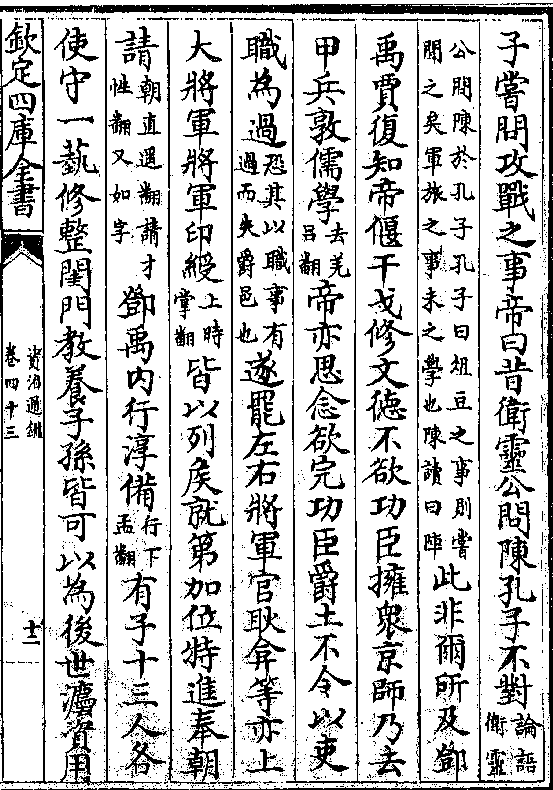 子嘗問攻戰之事帝曰昔衛靈公問陳孔子不對論語衛靈
公問陳於孔子孔子曰俎豆之事則嘗聞之矣軍旅之事未之學也陳讀曰陣此非爾所及鄧
禹賈復知帝偃干戈修文德不欲功臣擁衆京師乃去
甲兵敦儒學去羌呂翻帝亦思念欲完功臣爵土不令以吏
職為過恐其以職事有過而失爵邑也遂罷左右將軍官耿弇等亦上
大將軍將軍印綬上時掌翻皆以列侯就第加位特進奉朝
請朝直遥翻請才性翻又如字鄧禹内行淳備行下孟翻有子十三人各
使守一藝修整閨門教養子孫皆可以為後世灋資用
欽定四庫全書
資治通鑑
卷四十三
十二